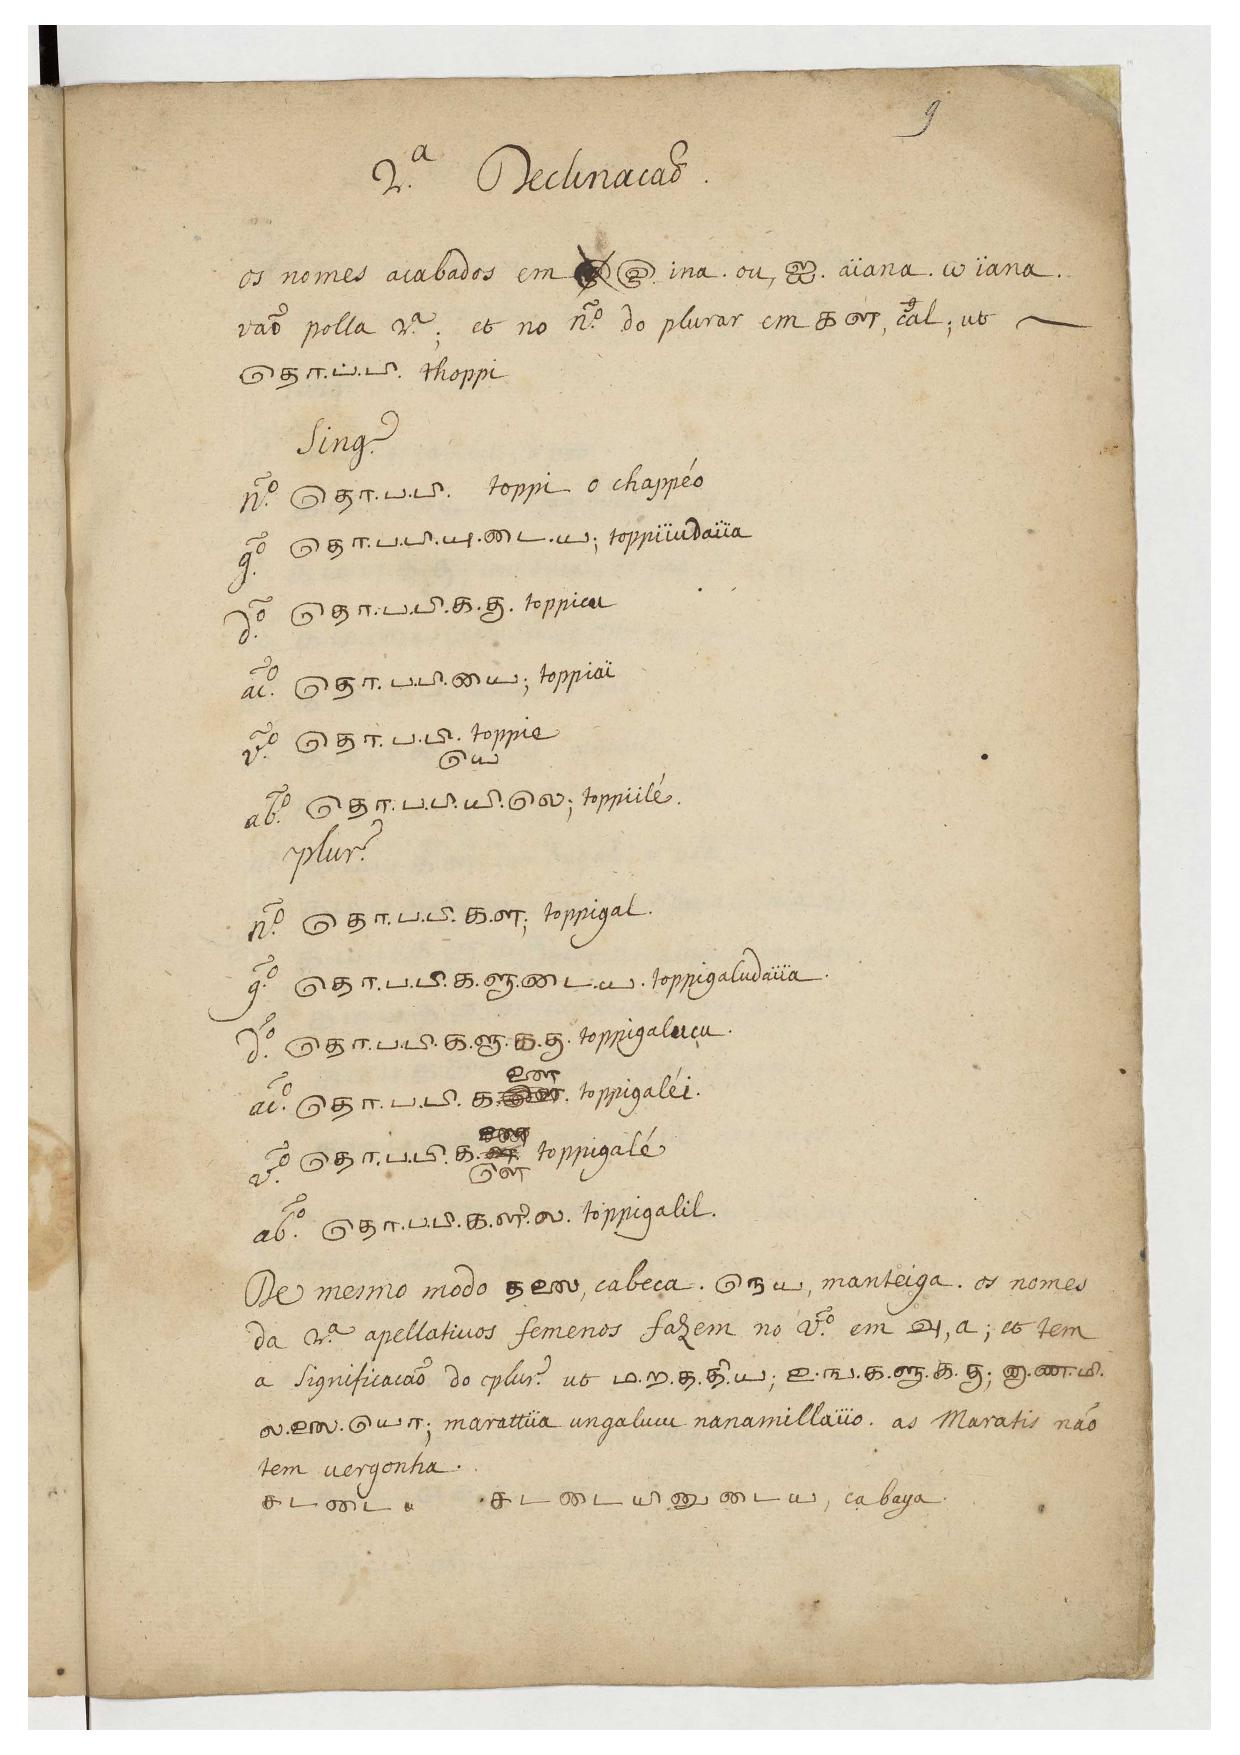 9
2.ª Declinacaõ.
os nomes acabados em இ ina. ou, ஐ. aïana. ω ïana.
vaõ polla 2.ª; et no nº. do plurar em கள, cal; ut
தொ.ப.பி. thoppi
Sing.
nº. தொ.ப.பி. toppi o chappéo
gº. தொ.ப.பி.யு.டை.ய; toppiüudaïia
dº. தொ.ப.பி.க.கு. toppicu
acº. தொ.ப.பி.யை; toppiaï
vº. தொ.ப.பி. toppie
யே
abº. தொ.ப.பி.யி.லே; toppiilé.
plur.
nº. தொ.ப.பி.க.ள; toppigal.
gº. தொ.ப.பி.க.ளு.டை.ய. toppigaludaïia.
dº. தொ.ப.பி.க.ளு.க.கு. toppigalucu.
ளை
acº. தொ.ப.பி.க. toppigaléi.
vº. தொ.ப.பி.க. toppigalé
ளே
abº. தொ.ப.பி.க.ளி.ல. toppigalil.
De mesmo modo தலை, cabeca. நெய, manteiga. os nomes
da 2.ª apellativos femenos fazem no vº. em அ, a; et tem
a significacaõ do plur. ut ம.ற.த.தி.ய; உ.ங.க.ளு.க.கு; நா.ண.மி.
ல.லை.யோ; marattïia ungalucu nanamillaïio. as Maratis não
tem vergonha.
சடடை சடடையினுடைய, cabaya.